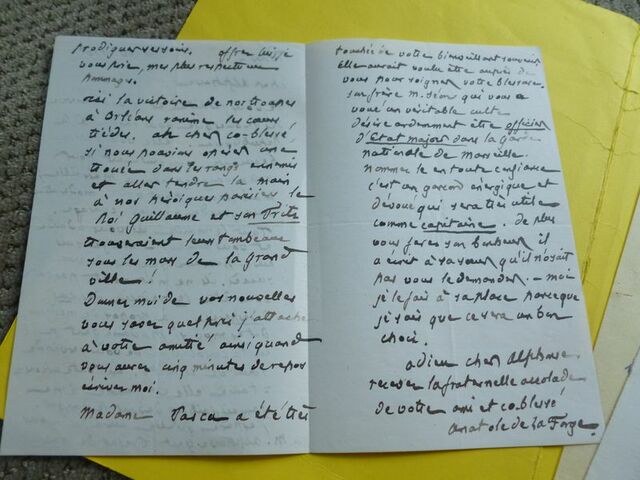 prodiguer ses soins. offrez lui je
vous prie, mes plus respectueux
hommages.
la victoire de nos troupes
à Orléans ranime les cœurs
tièdes. ah cher co-blessé
si nous pouvions opérer une
trouée dans les rangs ennemis
et aller tendre la main
à nos héroïques parisiens le
Roi Guillaume et son Fritz
trouveraient leurs tombeaux
sous les murs de la grand
ville !
Donnez moi de vos nouvelles
vous savez quel prix j'attache
à votre amitié ainsi quand
vous aurez cinq minutes de repos
écrivez moi.
Madame Pasca a été très
touchée de votre bienveillant souvenir
Elle aurait voulu être auprès de
vous pour soigner votre blessure.
son frère M. Séon qui vous a
voué un véritable culte
désire ardemment être officier
d'Etat major dans la Garde
nationale de Marseille.
nommez le en toute confiance
c'est un garçon énergique et
dévoué qui sera très utile
comme capitaine. De plus
vous ferez son bonheur il
a écrit à sa sœur qu'il n'osait
pas vous le demander. — moi
je le fais à sa place parceque
je sais que ce sera un bon
choix.
adieu cher Alphonse
recevez la fraternelle accolade
de votre ami et coblessé
Anatole de La Forge.